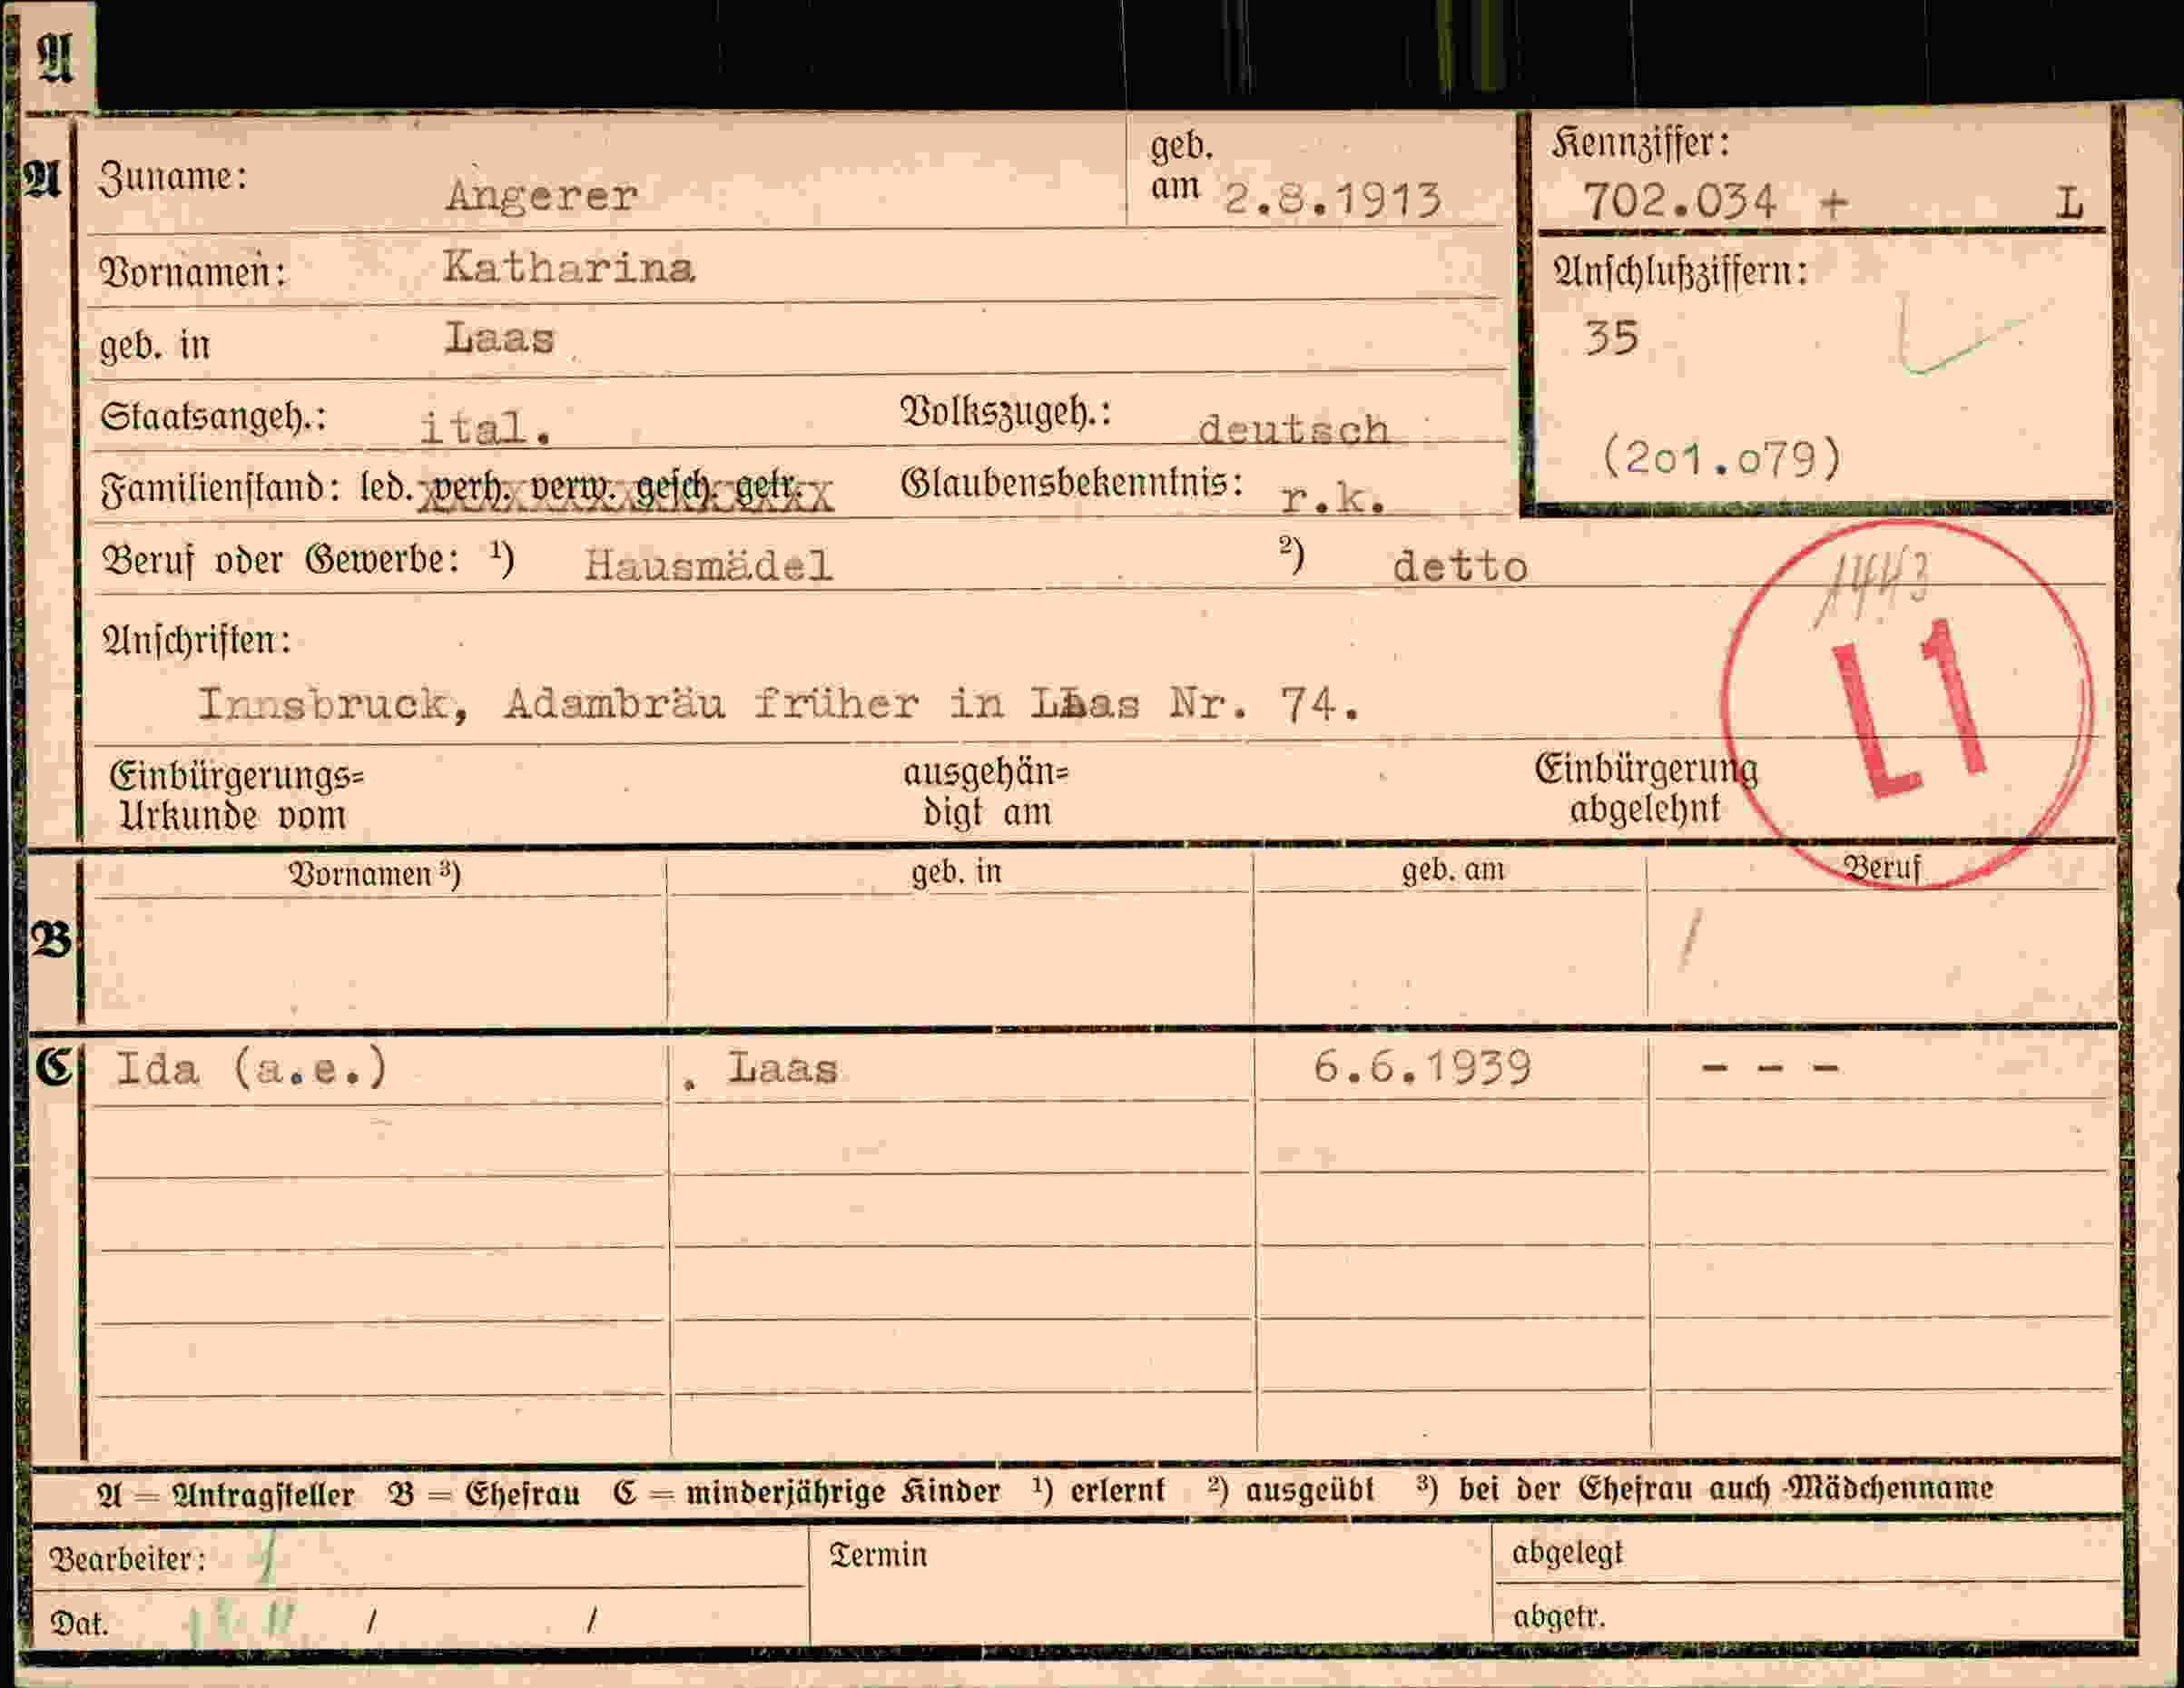 A
A Zuname: Angerer geb. am 2.8.1913
Kennziffer: 702.034 + L
Vornamen: Katharina
Anschlußziffern:
geb. in Laas
35
Staatsangeh.: ital. Volkszugeh.: deutsch
(201.079)
Familienstand: led. verh. verw. gesch. getr. Glaubensbekenntnis: r.k.
Beruf oder Gewerbe: ¹) Hausmädel ²) detto
1443
L1
Anschriften:
Innsbruck, Adambräu früher in Laas Nr. 74.
Einbürgerungs= ausgehän= Einbürgerung
Urkunde vom digt am abgelehnt
Vornamen ³) geb. in geb. am Beruf
B /
C Ida (a.e.) . Laas 6.6.1939 - - -
A = Antragsteller B = Ehefrau C = minderjährige Kinder ¹) erlernt ²) ausgeübt ³) bei der Ehefrau auch Mädchenname
Bearbeiter: Termin abgelegt
Dat. / / abgetr.